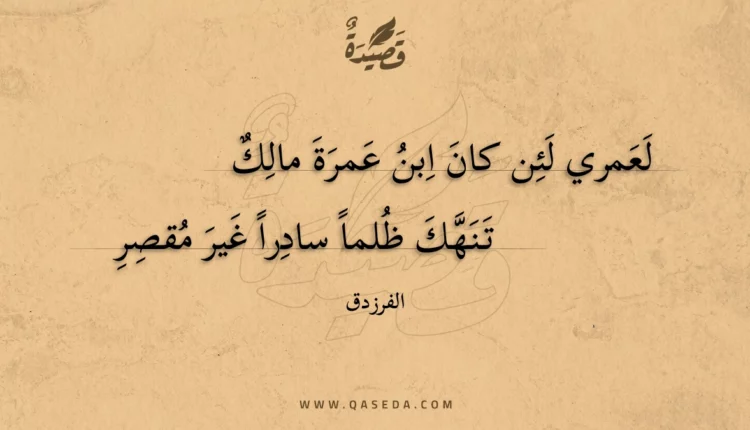 قَصِيدَةٌ
لَعَمري لَئِن كانَ اِبنُ عَمرَةَ مالِكٌ
تَنَهَّكَ ظُلماً سادِراً غَيرَ مُقصِرِ
الفرزدق
WWW.QASEDA.COM